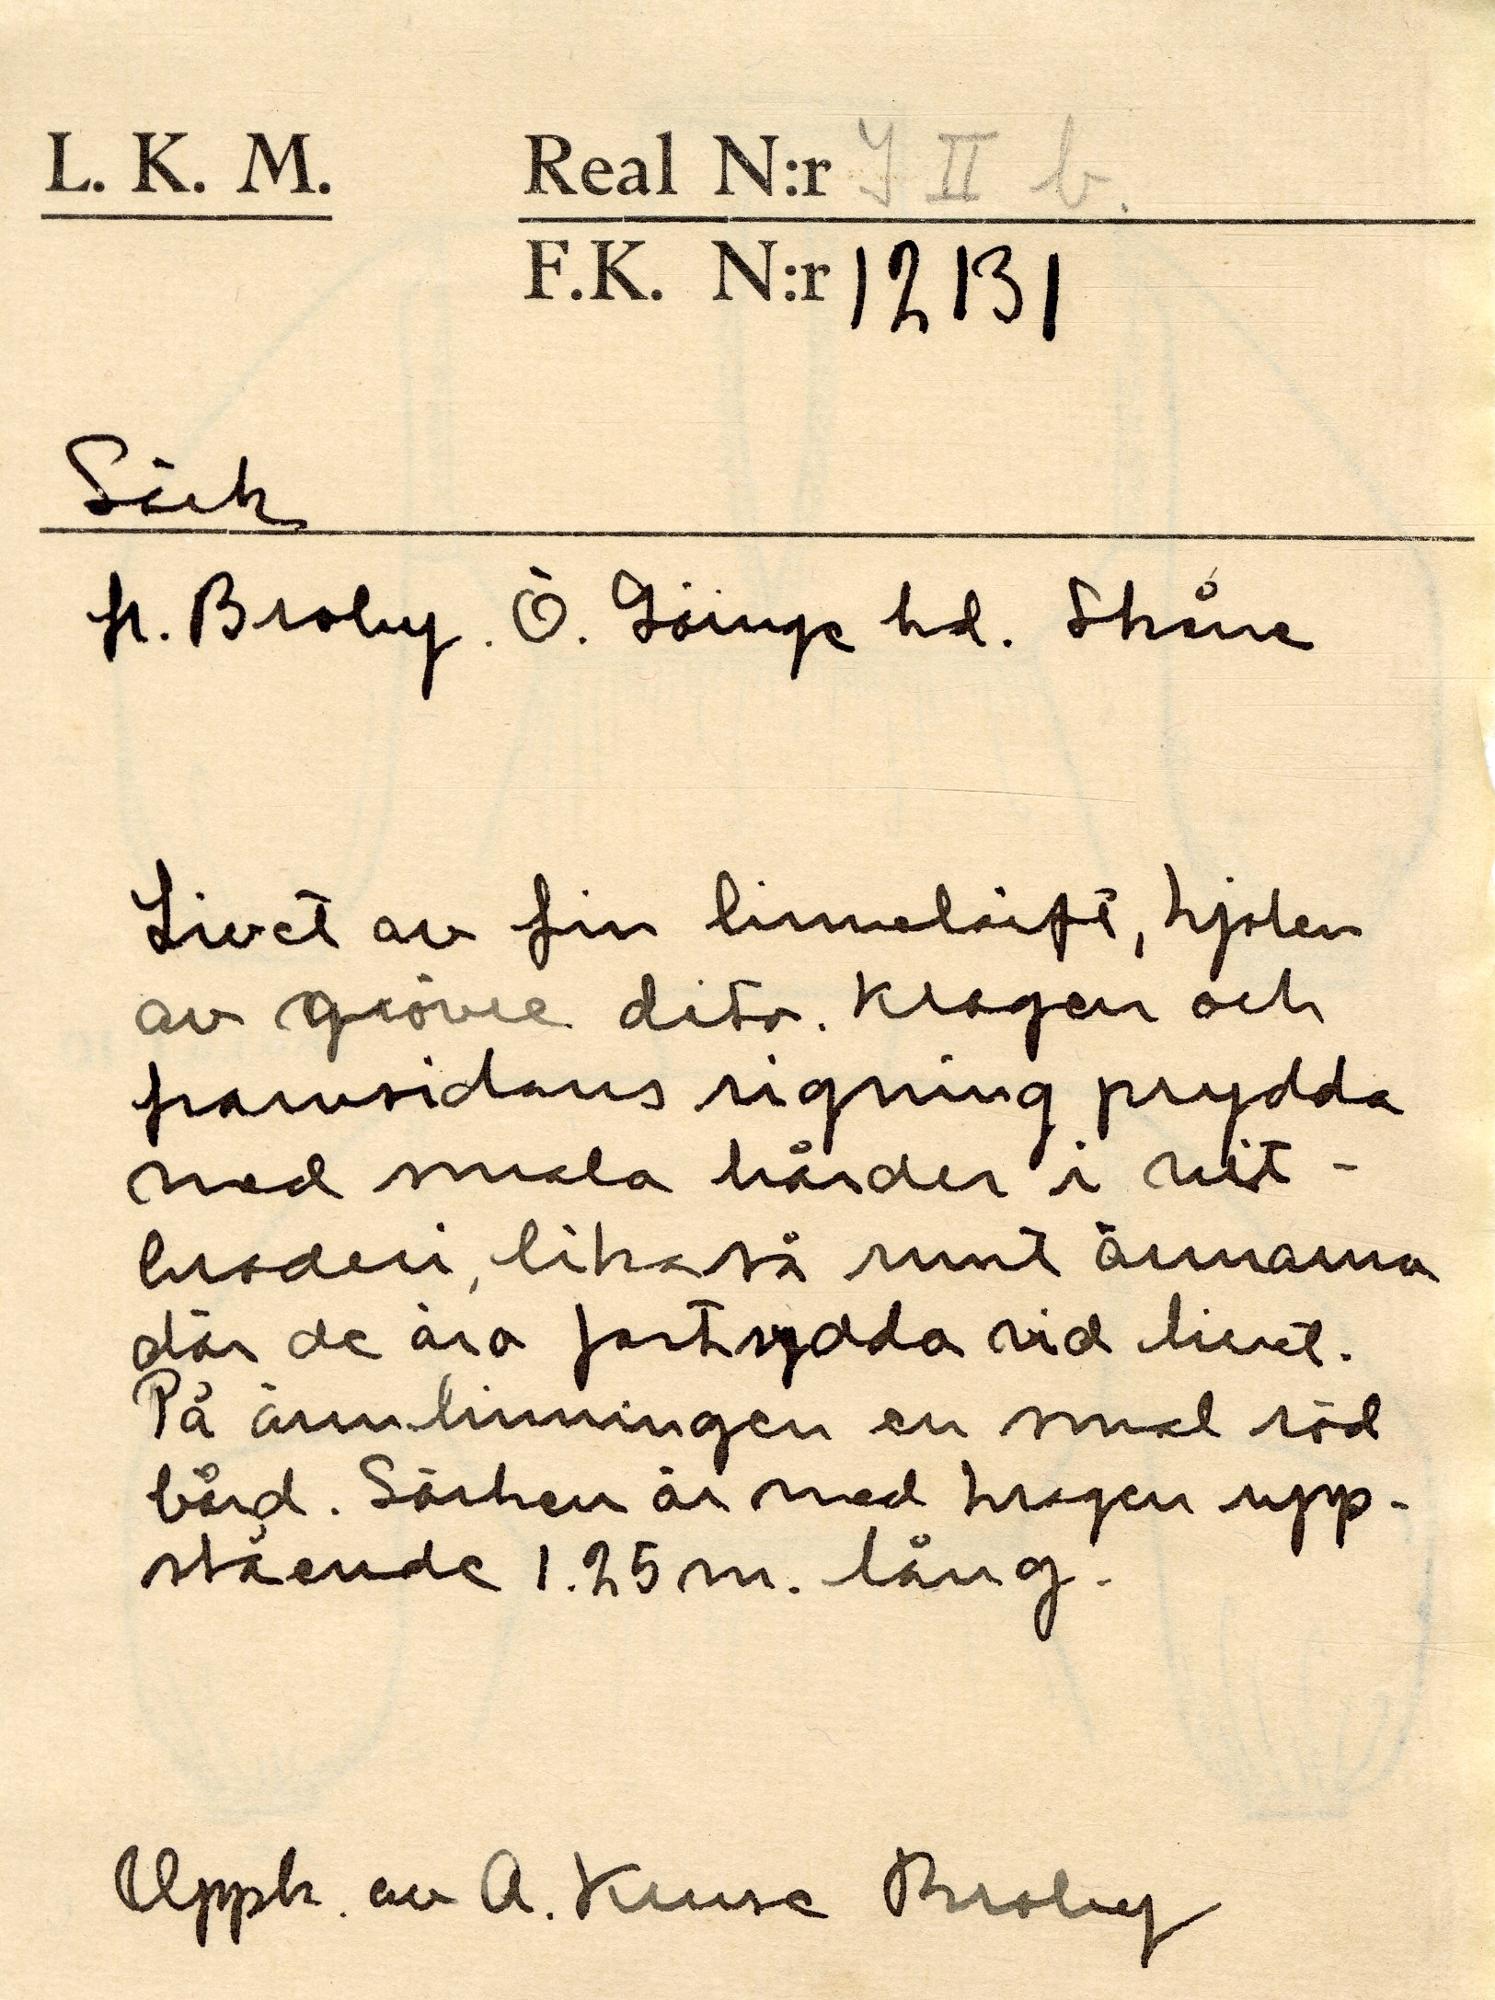 L. K. M. Real N:r J II b.
F.K. N:r 12131
Särk
fr. Broby. Ö. Göinge hd. Skåne
Livet av fin linnelärft, kjolen
av grövre dito. Kragen och
framsidans rigning prydda
med smala bårder i vit-
broderi, likaså runt ärmarna
där de äro fastsydda vid livet.
På ärmlinningen en smal röd
bård. Särken är med kragen upp-
stående 1.25 m. lång.
Uppk. av A. Kruse Broby